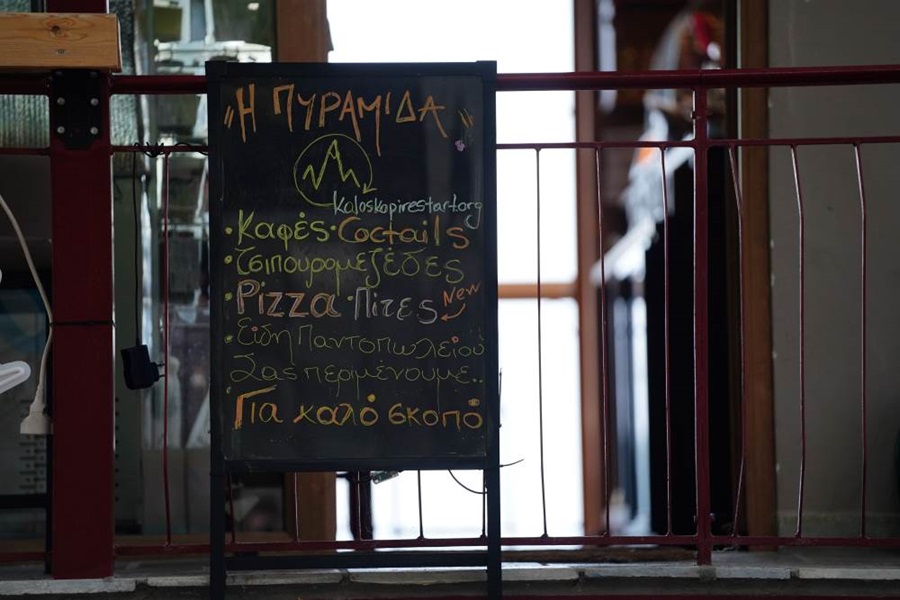 "Η ΠΥΡΑΜΙΔΑ"
kaloskopirestart.org
·Καφές·Coctails
·Τσιπουρομεζέδες
·Pizza·Πίτες New
·Είδη Παντοπωλείου
Σας περιμένουμε..
Για καλό σκοπό